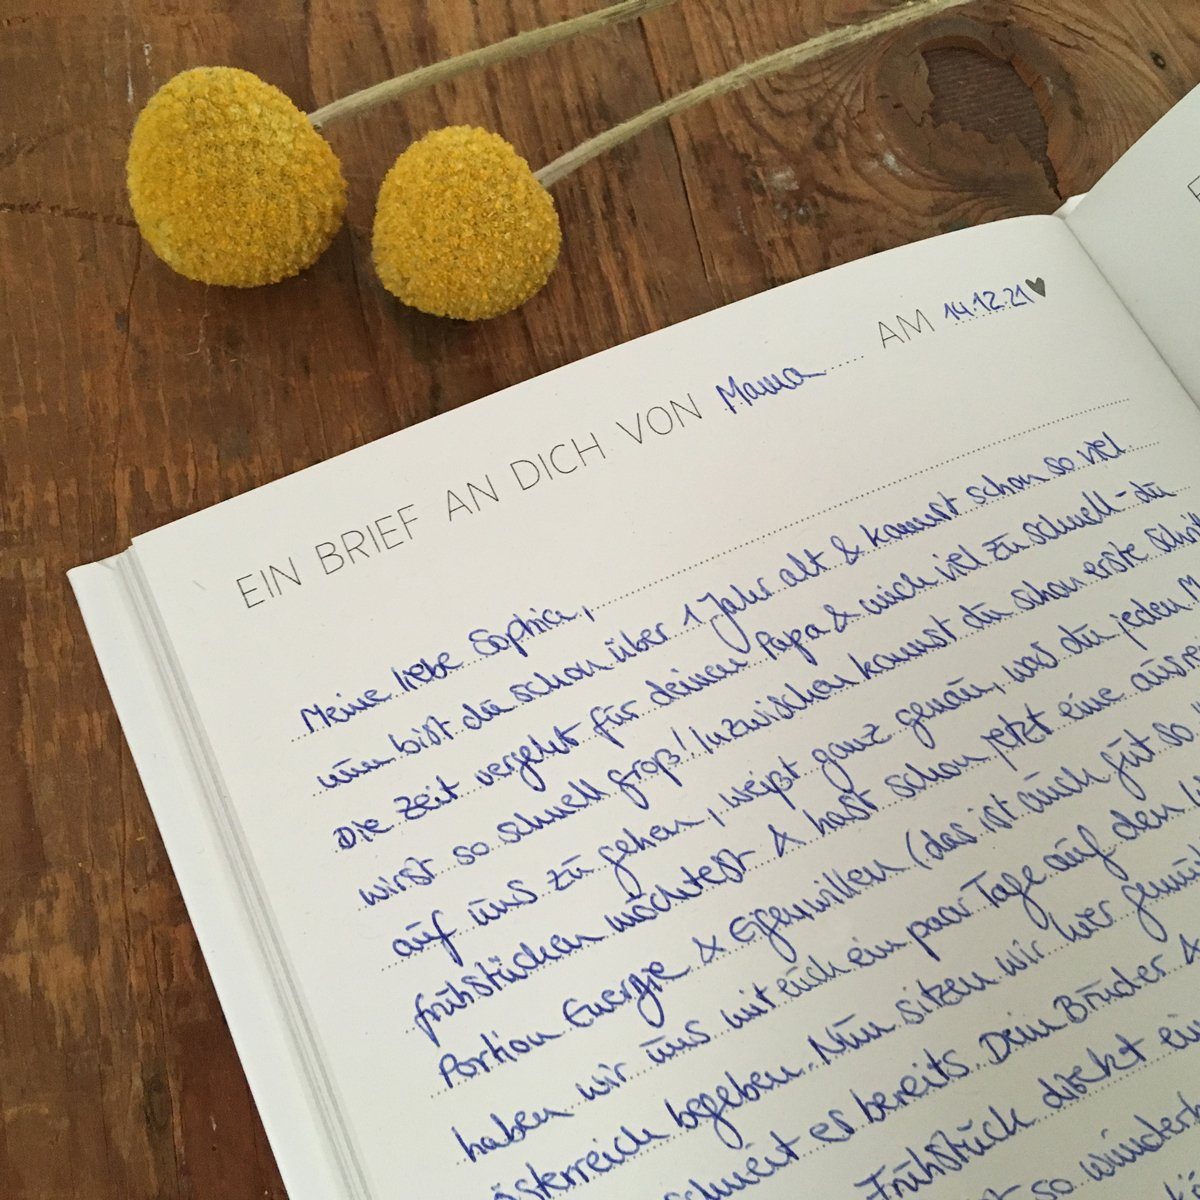 EIN BRIEF AN DICH VON Mama AM 14.12.21
Meine liebe Sophia,
nun bist du schon über 1 Jahr alt & kannst schon so viel.
Die Zeit vergeht für deinen Papa & mich viel zu schnell - du
wirst so schnell groß! Inzwischen kannst du schon erste
auf uns zu gehen, weißt ganz genau, was du jeden
frühstücken möchtest & hast schon jetzt eine
Portion Energie & Eigenwillen (das ist auch gut so
haben wir uns mit euch ein paar Tage auf den
Österreich begeben. Nun sitzen wir hier
schneit es bereits. Dein Bruder &
Frühstück direkt
so